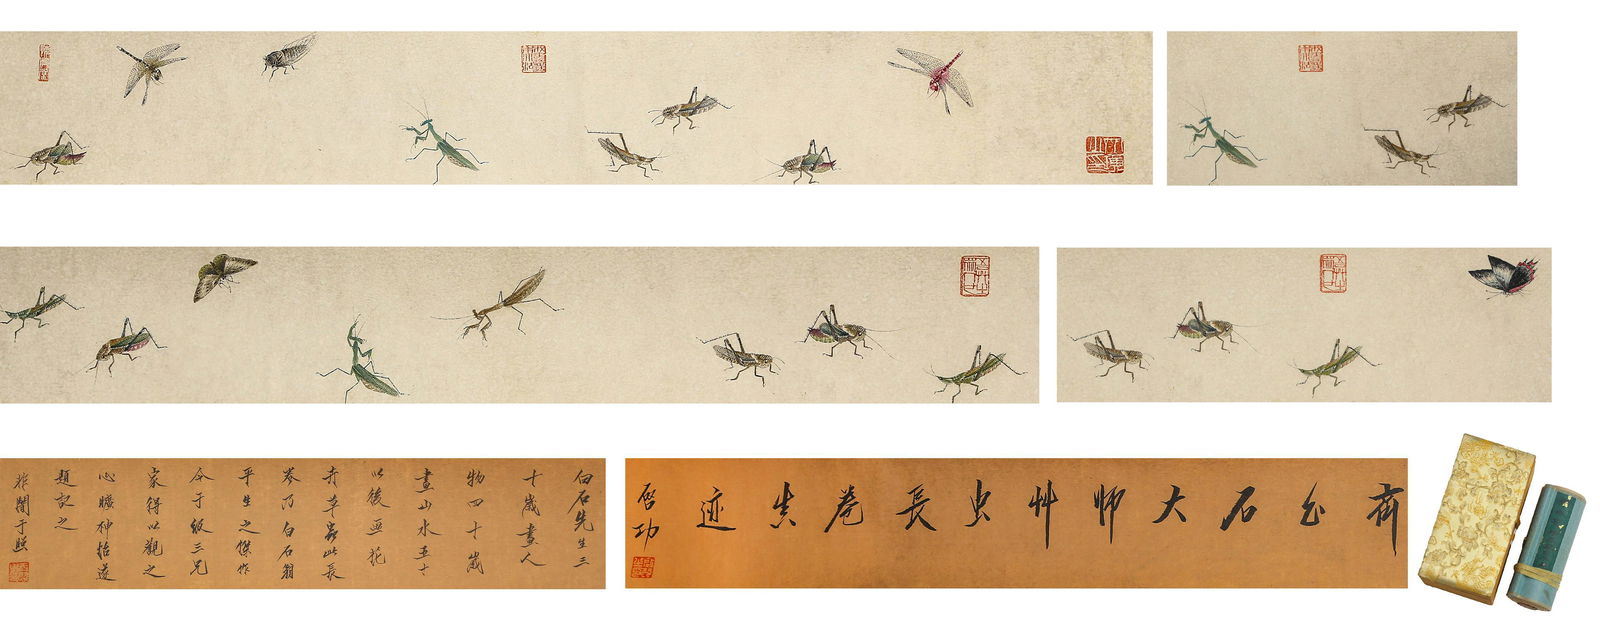 齊白石大師艸虫長卷真迹
啓功
白石先生三
十歲畫人
物四十歲
畫山水五十
以後画花
卉草蟲此長
卷乃白石翁
平生之傑作
今于三兄
家得以觀之
心曠神怡遂
題記之
非闇于照